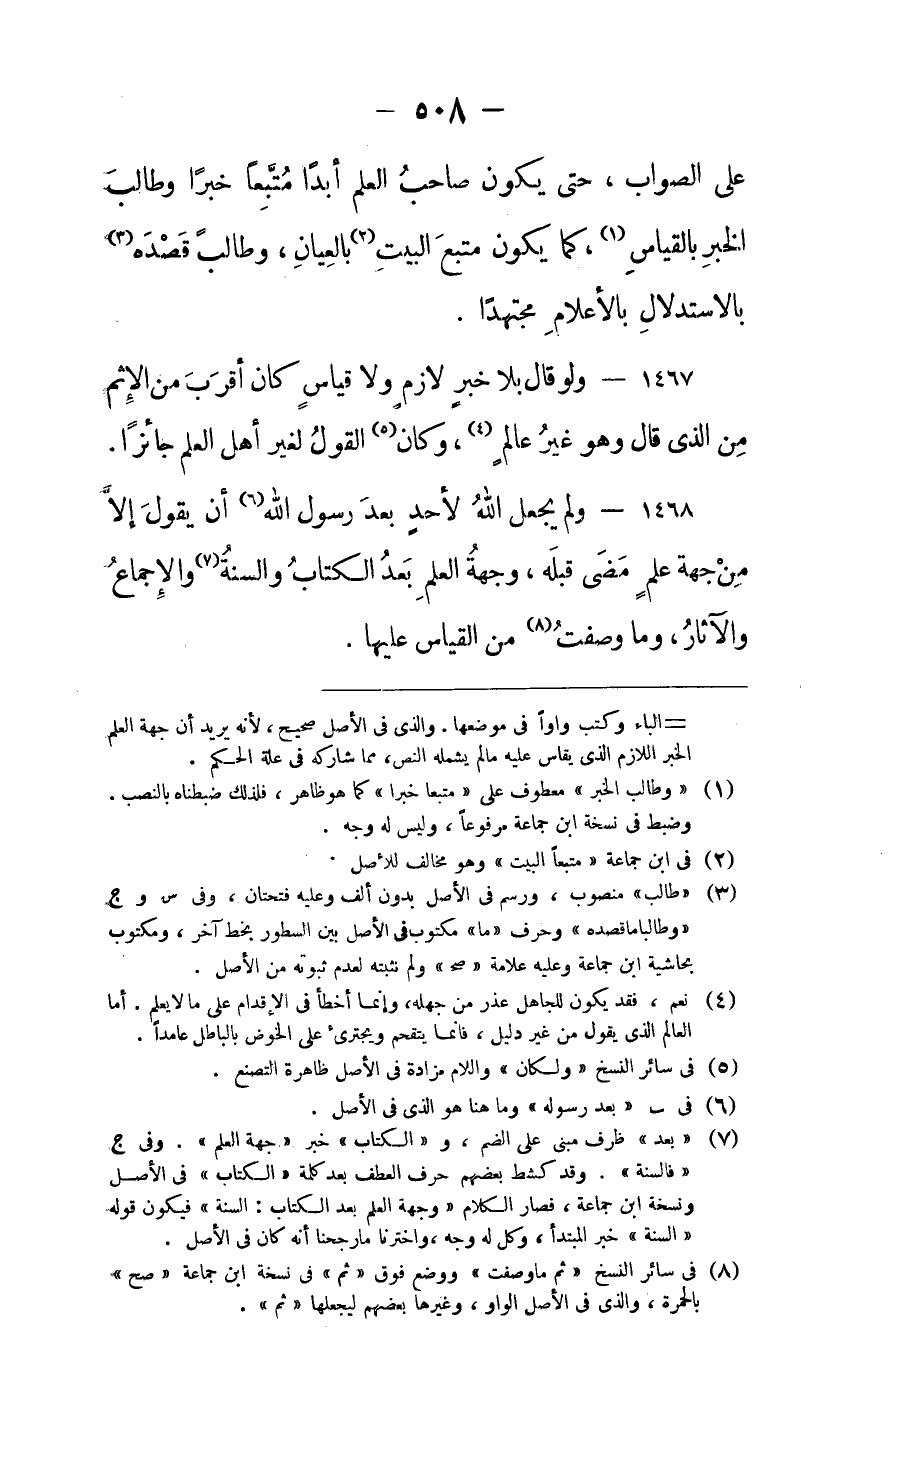 — ٥٠٨ —
على الصواب ، حتى يكون صاحبُ العلم أبدًا مُتَّبِعاً خبرًا وطالبَ
الخبرِ بالقياسِ (١) ، كما يكون متبعَ البيتِ (٢) بالعِيانِ ، وطالبً قَصْدَه (٣)
بالاستدلالِ بالأعلامِ مجتهدًا .
١٤٦٧ — ولو قال بلا خبرٍ لازمٍ ولا قياسٍ كان أقربَ من الإثم
مِن الذى قال وهو غيرُ عالمٍ (٤) ، وكان (٥) القولُ لغير أهل العلم جائزًا .
١٤٦٨ — ولم يجعل اللهُ لأحدٍ بعدَ رسول الله (٦) أن يقولَ إلاَّ
مِنْ جهة علمٍ مَضَى قبلَه ، وجهةُ العلمِ بَعدُ الكتابُ والسنةُ (٧) والإجماعُ
والآثارُ ، وما وصفتُ (٨) من القياس عليها .
= الباء وكتب واواً فى موضعها . والذى فى الأصل صحيح ، لأنه يريد أن جهة العلم
الخبر اللازم الذى يقاس عليه مالم يشمله النص ، مما شاركه فى علة الحكم .
(١) « وطالب الخبر » معطوف على « متبعا خبرا » كما هو ظاهر ، فلذلك ضبطناه بالنصب .
وضبط فى نسخة ابن جماعة مرفوعاً ، وليس له وجه .
(٢) فى ابن جماعة « متبعاً البيت » وهو مخالف للأصل .
(٣) « طالب » منصوب ، ورسم فى الأصل بدون ألف وعليه فتحتان ، وفى س و ج
« وطالبا ما قصده » وحرف « ما » مكتوب فى الأصل بين السطور بخط آخر ، ومكتوب
بحاشية ابن جماعة وعليه علامة « صح » ولم نثبته لعدم ثبوته من الأصل .
(٤) نعم ، فقد يكون للجاهل عذر من جهله ، وإنما أخطأ فى الإقدام على ما لا يعلم . أما
العالم الذى يقول من غير دليل ، فانما يتقحم ويجترىء على الخوض بالباطل عامداً .
(٥) فى سائر النسخ « ولكان » واللام مزادة فى الأصل ظاهرة التصنع .
(٦) فى ب « بعد رسوله » وما هنا هو الذى فى الأصل .
(٧) « بعد » ظرف مبنى على الضم ، و « الكتاب » خبر « جهة العلم » . وفى ج
« فالسنة » . وقد كشط بعضهم حرف العطف بعد كلمة « الكتاب » فى الأصل
ونسخة ابن جماعة ، فصار الكلام « وجهة العلم بعد الكتاب : السنة » فيكون قوله
« السنة » خبر المبتدأ ، وكل له وجه ، واخترنا ما رجحنا أنه كان فى الأصل .
(٨) فى سائر النسخ « ثم ما وصفت » ووضع فوق « ثم » فى نسخة ابن جماعة « صح »
بالحمرة ، والذى فى الأصل الواو ، وغيرها بعضهم ليجعلها « ثم » .